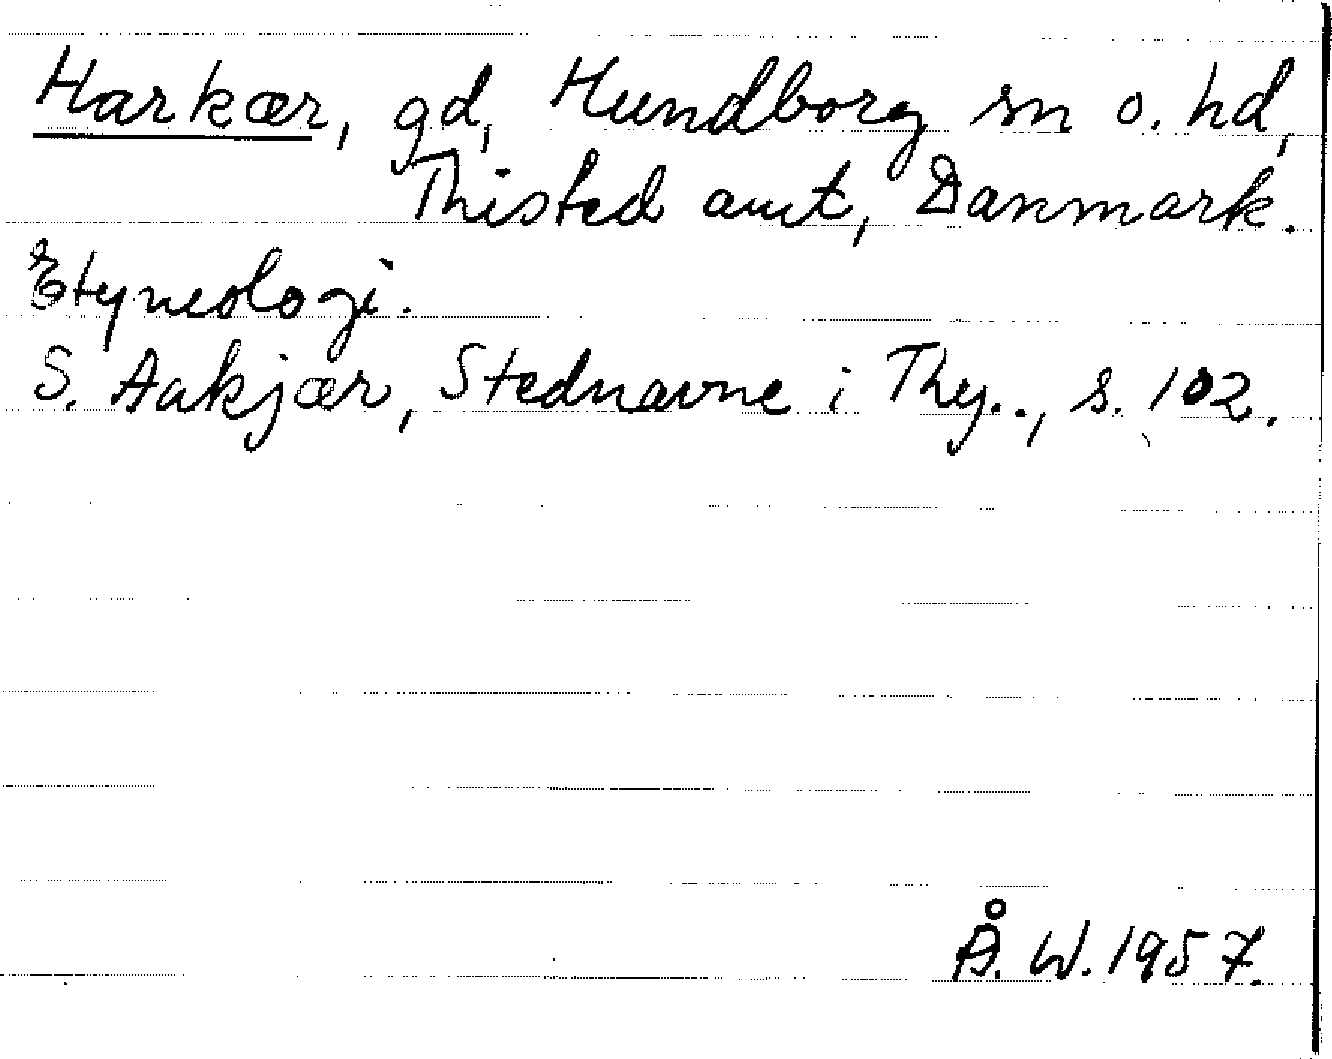 Harkær, gd, Hundborg sn o. hd,
Thisted amt, Danmark.
Etymologi.
S. Aakjær, Stednavne i Thy.., s. 102.
Å. W. 1957.